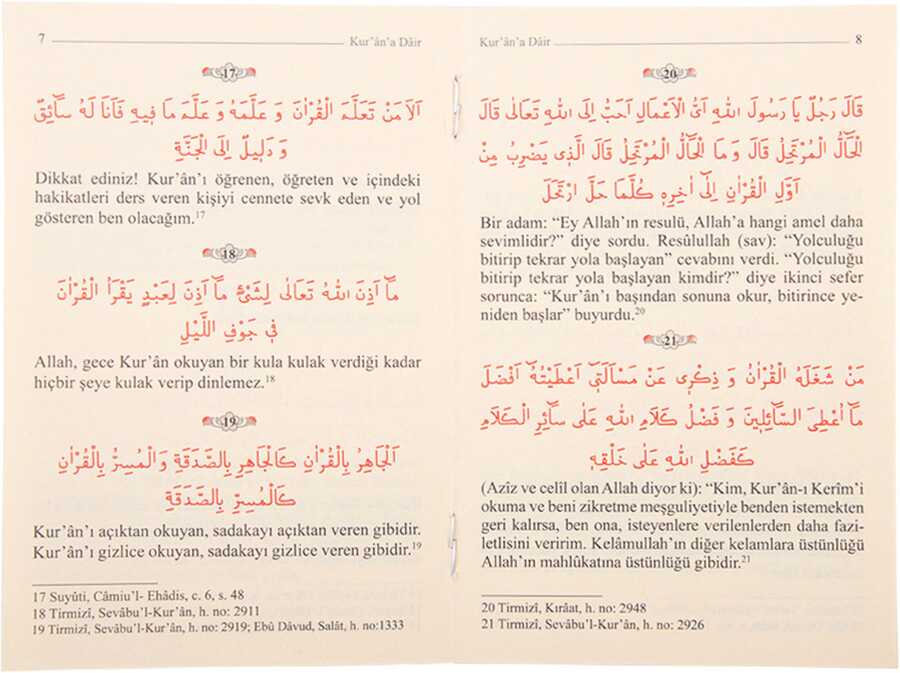 7 Kur’ân’a Dâir
17
اَلَا مَنْ تَعَلَّمَ الْقُرْاٰنَ وَ عَلَّمَهُ وَ عَلَّمَ مَا فٖيهِ فَاَنَا لَهُ سَٓائِقٌ
وَ دَلٖيلٌ اِلَى الْجَنَّةِ
Dikkat ediniz! Kur’ân’ı öğrenen, öğreten ve içindeki
hakikatleri ders veren kişiyi cennete sevk eden ve yol
gösteren ben olacağım.17
18
مَٓا اَذِنَ اللّٰهُ تَعَالٰى لِشَیْءٍ مَٓا اَذِنَ لِعَبْدٍ يَقْرَاُ الْقُرْاٰنَ
فٖى جَوْفِ اللَّيْلِ
Allah, gece Kur’ân okuyan bir kula kulak verdiği kadar
hiçbir şeye kulak verip dinlemez.18
19
اَلْجَاهِرُ بِالْقُرْاٰنِ كَالْجَاهِرِ بِالصَّدَقَةِ وَالْمُسِرُّ بِالْقُرْاٰنِ
كَالْمُسِرِّ بِالصَّدَقَةِ
Kur’ân’ı açıktan okuyan, sadakayı açıktan veren gibidir.
Kur’ân’ı gizlice okuyan, sadakayı gizlice veren gibidir.19
17 Suyûti, Câmiu’l- Ehâdis, c. 6, s. 48
18 Tirmizî, Sevâbu’l-Kur’ân, h. no: 2911
19 Tirmizî, Sevâbu’l-Kur’ân, h. no: 2919; Ebû Dâvud, Salât, h. no:1333
Kur’ân’a Dâir 8
20
قَالَ رَجُلٌ يَا رَسُولَ اللّٰهِ اَىُّ الْاَعْمَالِ اَحَبُّ اِلَى اللّٰهِ تَعَالٰى قَالَ
الْحَالُّ الْمُرْتَحِلُ قَالَ وَ مَا الْحَالُّ الْمُرْتَحِلُ قَالَ الَّذٖى يَضْرِبُ مِنْ
اَوَّلِ الْقُرْاٰنِ اِلٰٓى اٰخِرِهٖ كُلَّمَا حَلَّ ارْتَحَلَ
Bir adam: “Ey Allah’ın resulü, Allah’a hangi amel daha
sevimlidir?” diye sordu. Resûlullah (sav): “Yolculuğu
bitirip tekrar yola başlayan” cevabını verdi. “Yolculuğu
bitirip tekrar yola başlayan kimdir?” diye ikinci sefer
sorunca: “Kur’ân’ı başından sonuna okur, bitirince ye-
niden başlar” buyurdu.20
21
مَنْ شَغَلَهُ الْقُرْاٰنُ وَ ذِكْرٖى عَنْ مَسْاَلَتٖٓى اَعْطَيْتُهُٓ اَفْضَلَ
مَٓا اُعْطِىَ السَّٓائِلٖينَ وَ فَضْلُ كَلَامِ اللّٰهِ عَلٰى سَٓائِرِ الْكَلَامِ
كَفَضْلِ اللّٰهِ عَلٰى خَلْقِهٖ
(Azîz ve celîl olan Allah diyor ki): “Kim, Kur’ân-ı Kerîm’i
okuma ve beni zikretme meşguliyetiyle benden istemekten
geri kalırsa, ben ona, isteyenlere verilenlerden daha fazi-
letlisini veririm. Kelâmullah’ın diğer kelamlara üstünlüğü
Allah’ın mahlûkatına üstünlüğü gibidir.21
20 Tirmizî, Kırâat, h. no: 2948
21 Tirmizî, Sevâbu’l-Kur’ân, h. no: 2926